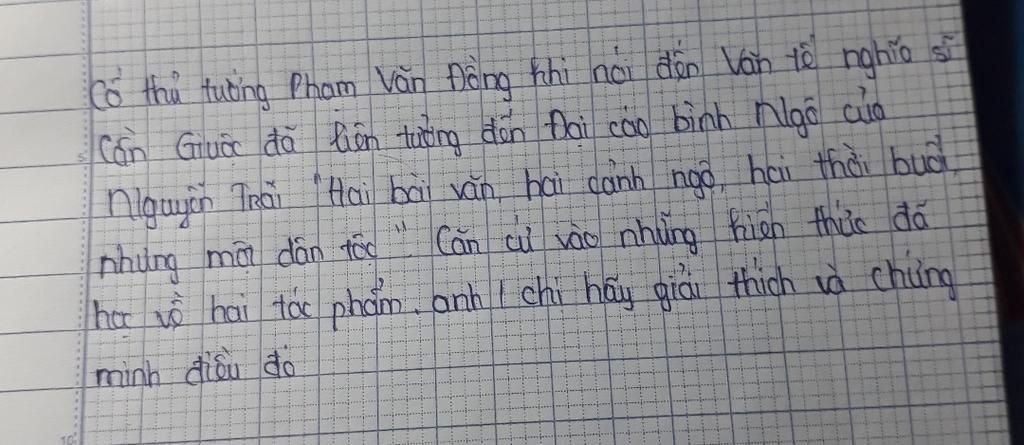 Cố thủ tướng Phạm Văn Đồng khi nói đến Văn tế nghĩa sĩ
Cần Giuộc đã liên tưởng đến Đại cáo bình Ngô của
Nguyễn Trãi "Hai bài văn, hai cảnh ngộ, hai thời buổi,
nhưng một dân tộc" Căn cứ vào những kiến thức đã
học về hai tác phẩm, anh / chị hãy giải thích và chứng
minh điều đó